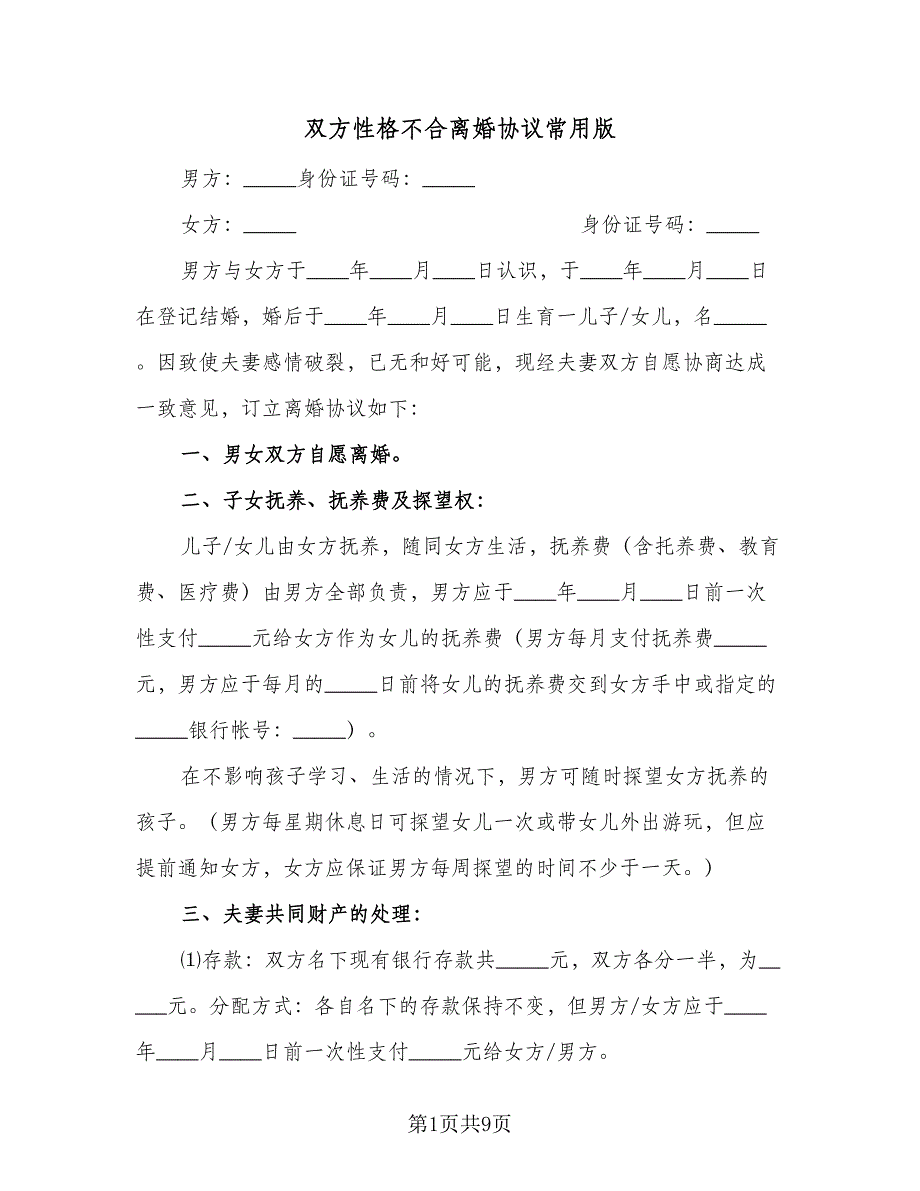 双方性格不合离婚协议常用版
男方：_____身份证号码：_____
女方：_____ 身份证号码：_____
男方与女方于____年____月____日认识，于____年____月____日
在登记结婚，婚后于____年____月____日生育一儿子/女儿，名_____
。因致使夫妻感情破裂，已无和好可能，现经夫妻双方自愿协商达成
一致意见，订立离婚协议如下：
一、男女双方自愿离婚。
二、子女抚养、抚养费及探望权：
儿子/女儿由女方抚养，随同女方生活，抚养费（含托养费、教育
费、医疗费）由男方全部负责，男方应于____年____月____日前一次
性支付_____元给女方作为女儿的抚养费（男方每月支付抚养费_____
元，男方应于每月的_____日前将女儿的抚养费交到女方手中或指定的
_____银行帐号：_____）。
在不影响孩子学习、生活的情况下，男方可随时探望女方抚养的
孩子。（男方每星期休息日可探望女儿一次或带女儿外出游玩，但应
提前通知女方，女方应保证男方每周探望的时间不少于一天。）
三、夫妻共同财产的处理：
⑴存款：双方名下现有银行存款共_____元，双方各分一半，为__
___元。分配方式：各自名下的存款保持不变，但男方/女方应于____
年____月____日前一次性支付_____元给女方/男方。
第1页共9页